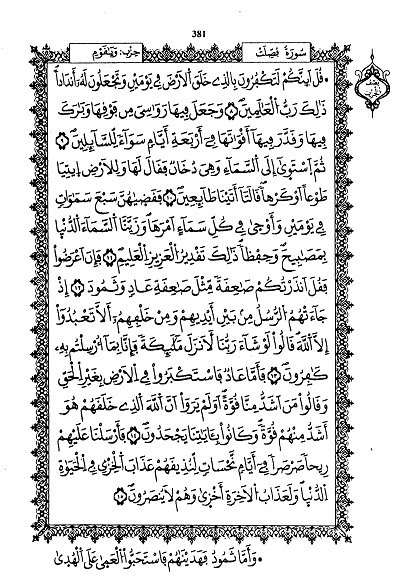 381
سورة فصلت
حزب: وقهوم
۞ قُلَ اَينَّكُمْ لَتَكْفُرُونَ بِالذِے خَلَقَ اَلَارْضَ فِے يَوْمَيْنِ وَتَجْعَلُونَ لَهُۥٓ أَندَاداٗ
ذَٰلِكَ رَبُّ اُلْعَٰلَمِينَۖ وَجَعَلَ فِيهَا رَوَٰسِيَ مِن فَوْقِهَا وَبَٰرَكَ
فِيهَا وَقَدَّرَ فِيهَآ أَقْوَٰتَهَا فِےٓ أَرْبَعَةِ أَيَّامٖ سَوَآءٗ لِّلسَّآئِلِينَۖ
ثُمَّ اَسْتَوَىٰٓ إِلَى اَلسَّمَآءِ وَهْيَ دُخَانٞ فَقَالَ لَهَا وَلِلَارْضِ اِيتِيَا
طَوْعاً اَوْ كَرْهاٗ قَالَتَآ أَتَيْنَا طَآئِعِينَۖ فَقَضَيٰهُنَّ سَبْعَ سَمَٰوَاتٖ
فِے يَوْمَيْنِ وَأَوْحَىٰ فِے كُلِّ سَمَآءٍ اَمْرَهَاۖ وَزَيَّنَّا اَلسَّمَآءَ اَلدُّنْيَا
بِمَصَٰبِيحَ وَحِفْظاٗۖ ذَٰلِكَ تَقْدِيرُ اُلْعَزِيزِ اِلْعَلِيمِۖ فَإِنَ اَعْرَضُواْ
فَقُلَ اَنذَرْتُكُمْ صَٰعِقَةٗ مِّثْلَ صَٰعِقَةِ عَادٖ وَثَمُودَ إِذْ
جَآءَتْهُمُ اُلرُّسُلُ مِنۢ بَيْنِ أَيْدِيهِمْ وَمِنْ خَلْفِهِمُۥٓ أَلَّا تَعْبُدُوٓاْ
إِلَّا اَللَّهَۖ قَالُواْ لَوْ شَآءَ رَبُّنَا لَأَنزَلَ مَلَٰٓئِكَةٗ فَإِنَّا بِمَآ أُرْسِلْتُم بِهِۦ
كَٰفِرُونَۖ فَأَمَّا عَادٞ فَاسْتَكْبَرُواْ فِے اِلَارْضِ بِغَيْرِ اِلْحَقِّ
وَقَالُواْ مَنَ اَشَدُّ مِنَّا قُوَّةًۖ اَوَلَمْ يَرَوَاْ اَنَّ اَللَّهَ اَلذِے خَلَقَهُمْ هُوَ
أَشَدُّ مِنْهُمْ قُوَّةٗۖ وَكَانُواْ بِـَٔايَٰتِنَا يَجْحَدُونَۖ فَأَرْسَلْنَا عَلَيْهِمْ
رِيحاٗ صَرْصَراٗ فِےٓ أَيَّامٖ نَّحْسَاتٖ لِّنُذِيقَهُمْ عَذَابَ اَلْخِزْيِ فِے اِلْحَيَوٰةِ
اِلدُّنْيَا وَلَعَذَابُ اُلَاخِرَةِ أَخْزَىٰ وَهُمْ لَا يُنصَرُونَۖ
۞ وَأَمَّا ثَمُودُ فَهَدَيْنَٰهُمْ فَاسْتَحَبُّواْ اُلْعَمَىٰ عَلَى اَلْهُدَىٰ